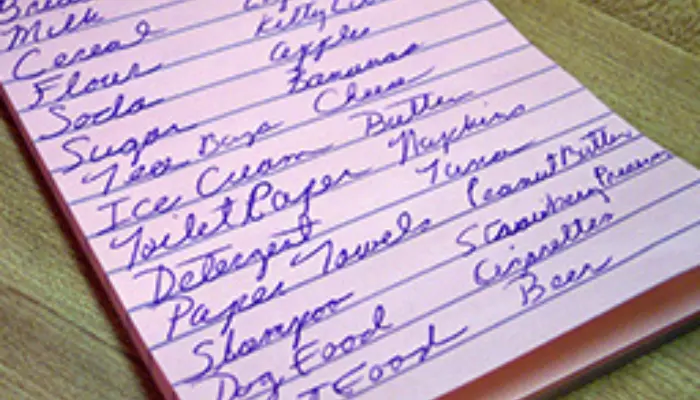 Bread
Milk
Cereal
Flour
Soda
Sugar
Tea Bags
Ice Cream
Toilet Paper
Detergent
Paper Towels
Shampoo
Dog Food
Food
Kitty
Apples
Bananas
Cheese
Butter
Napkins
Tuna
Peanut Butter
Strawberry Preserves
Cigarettes
Beer